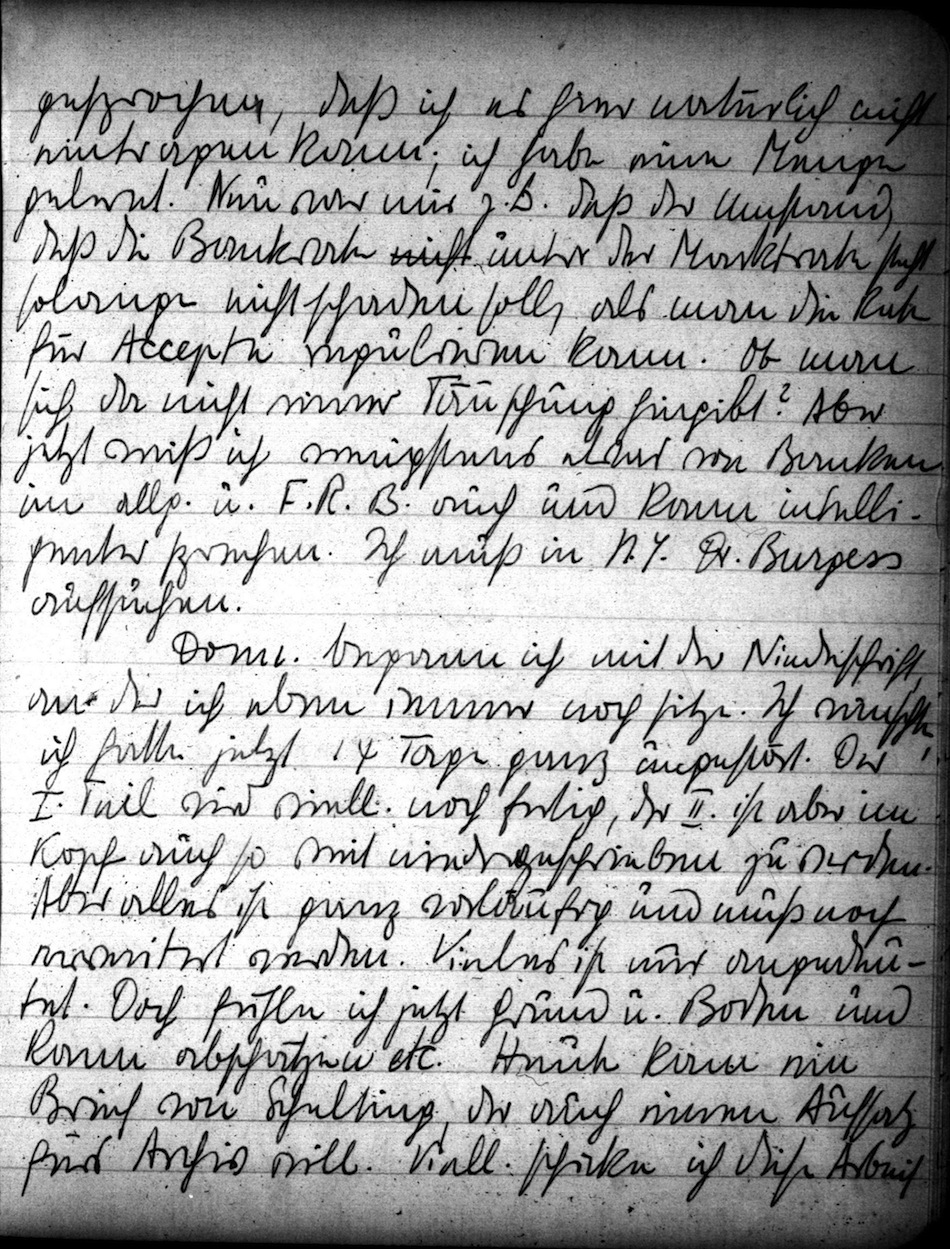 gesprochen, daß ich es hier natürlich nicht
eintragen kann; ich habe eine Menge
gelernt. Neu war mir z.B. daß der Umstand,
daß die Bankrate nicht unter der Marktrate steht
solange nicht schaden soll, als man die Rate
für Accepte regulieren kann. Ob man
sich da nicht einer Täuschung hingibt? Aber
jetzt weiß ich wenigstens etwas von Banken
im allg. u. F.R.B. auch und kann intelli-
genter sprechen. Ich muß in N.Y. Dr. Burgess
aufsuchen.
Dann begann ich mit der Niederschrift,
an der ich eben immer noch sitze. Ich wünschte,
ich hätte jetzt 14 Tage ganz ungestört. Der
I. Teil wird viell. noch fertig, der II. ist aber im
Kopf auch so weit niedergeschrieben zu werden.
Aber alles ist ganz vorläufig und muß noch
erweitert werden. Vieles ist nur angedeu-
tet. Doch fühle ich jetzt Grund u. Boden und
kann abschätzen etc. Heute kam ein
Brief von der auch einen Aufsatz
fürs Archiv will. Viell. schicke ich diese Arbeit